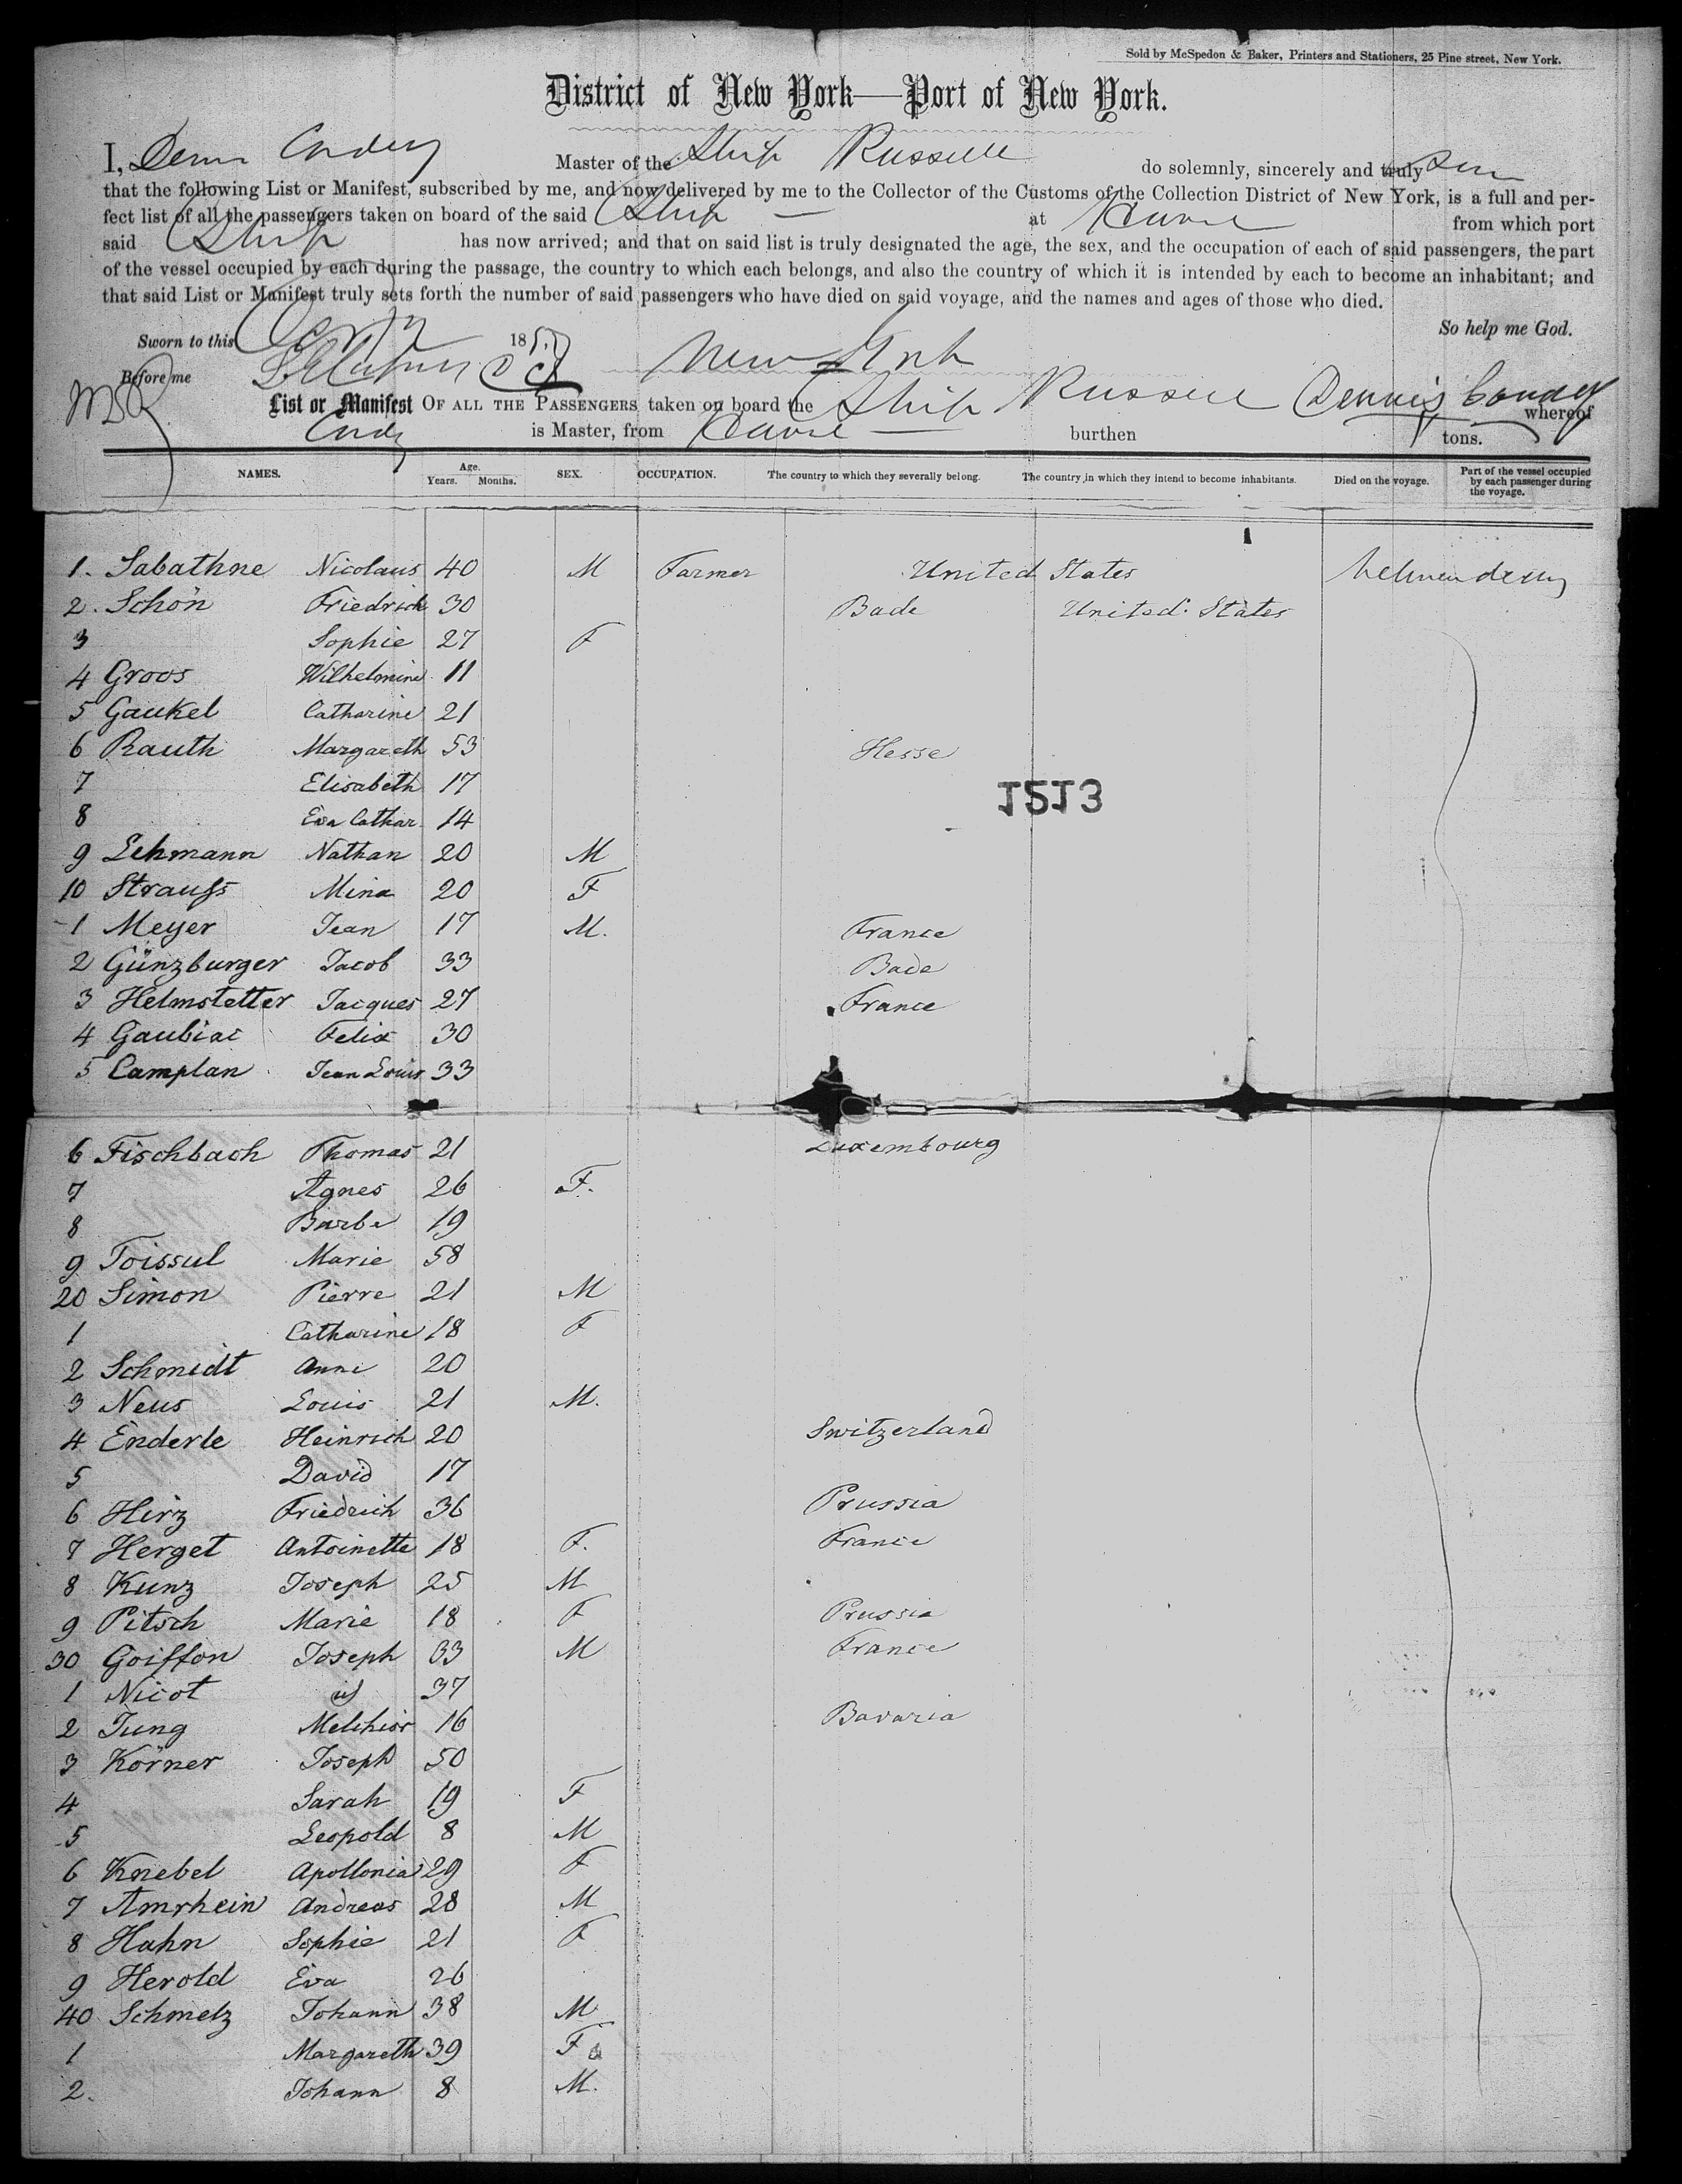 Sold by McSpedon & Baker, Printers and Stationers, 25 Pine street, New York.
District of New York—Port of New York.
I, Master of the Ship Russell do solemnly, sincerely and truly
that the following List or Manifest, subscribed by me, and now delivered by me to the Collector of the Customs of the Collection District of New York, is a full and per-
fect list of all the passengers taken on board of the said Ship — at Havre from which port
said Ship has now arrived; and that on said list is truly designated the age, the sex, and the occupation of each of said passengers, the part
of the vessel occupied by each during the passage, the country to which each belongs, and also the country of which it is intended by each to become an inhabitant; and
that said List or Manifest truly sets forth the number of said passengers who have died on said voyage, and the names and ages of those who died.
So help me God.
Sworn to this 185
Before me New York
List or Manifest OF ALL THE PASSENGERS taken on board the Ship Russell Dennis whereof
is Master, from Havre — burthen tons.
NAMES. Age. Years. Months. SEX. OCCUPATION. The country to which they severally belong. The country in which they intend to become inhabitants. Died on the voyage. Part of the vessel occupied by each passenger during the voyage.
1. Sabathne Nicolaus 40 M Farmer United States
2. Schön Friedrich 30 Bade United States
3 Sophie 27 F
4 Groos Wilhelmine 11
5 Gaukel Catharine 21
6 Rauth Margareth 53 Hesse
7 Elisabeth 17
1513
8 Eva Cathar. 14
9 Lehmann Nathan 20 M
10 Strauss Mina 20 F
1 Meyer Jean 17 M. France
2 Günzburger Jacob 33 Bade
3 Helmstetter Jacques 27 France
4 Gaubiac Felix 30
5 Camplan Jean Louis 33
6 Fischbach Thomas 21 Luxembourg
7 Agnes 26 F.
8 Barbe 19
9 Toissul Marie 58
20 Simon Pierre 21 M
1 Catharine 18 F
2 Schmidt Anne 20
3 Neus Louis 21 M.
4 Enderle Heinrich 20 Switzerland
5 David 17
6 Hirz Friedrich 36 Prussia
7 Herget Antoinette 18 F. France
8 Kunz Joseph 25 M
9 Pitsch Marie 18 F Prussia
30 Goiffon Joseph 33 M France
1 Nicot id 37
2 Jung Melchior 16 Bavaria
3 Körner Joseph 50
4 Sarah 19 F
5 Leopold 8 M
6 Knebel Apollonia 29 F
7 Amrhein Andreas 28 M
8 Hahn Sophie 21 F
9 Herold Eva 26
40 Schmelz Johann 38 M
1 Margareth 39 F
2. Johann 8 M.